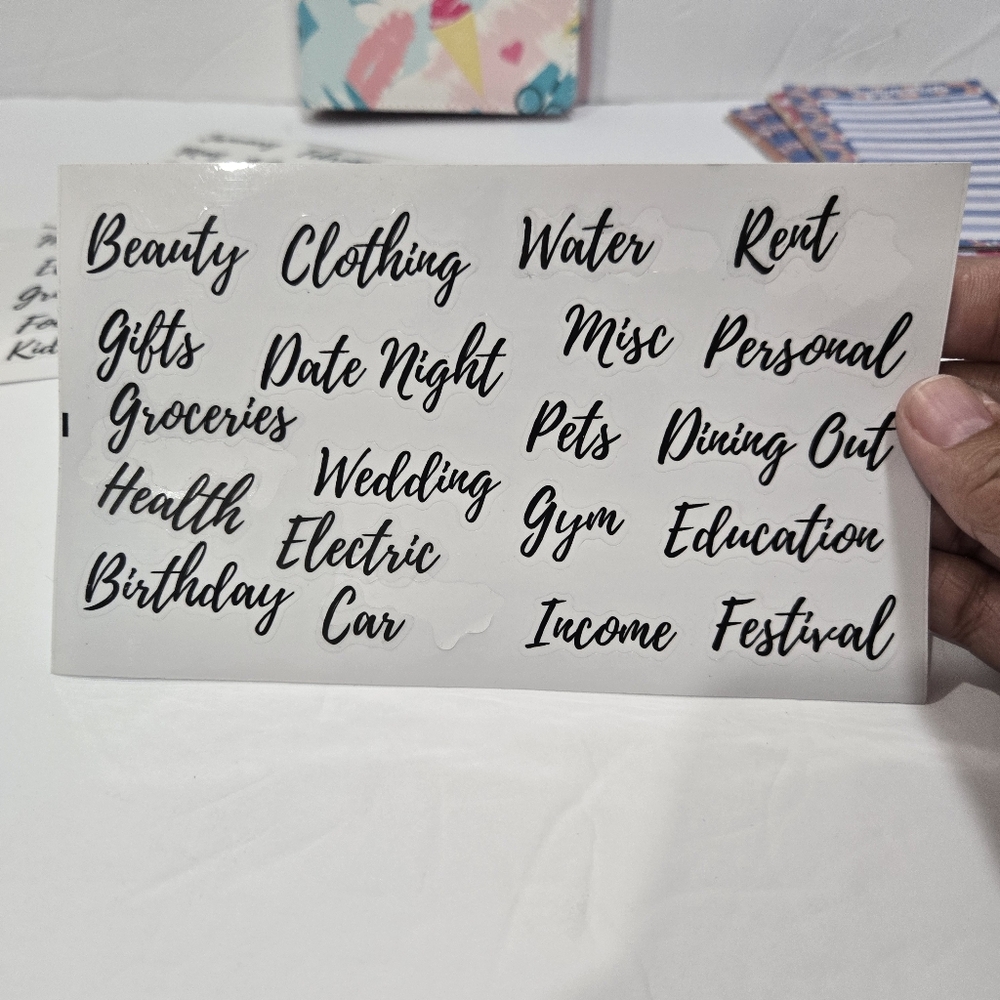 Beauty Clothing Water Rent
Gifts Date Night Misc Personal
Groceries Pets Dining Out
Health Wedding Gym Education
Birthday Electric
Car Income Festival